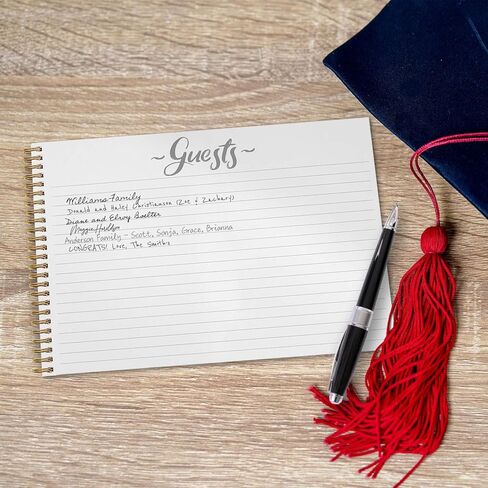 ~ Guests ~
Williams Family
Donald and Haley Christianson (Zoe & Zachary)
Diane and Elroy Boelter
Anderson Family - Scott, Sonja, Grace, Brianna
CONGRATS! Love, The Smiths